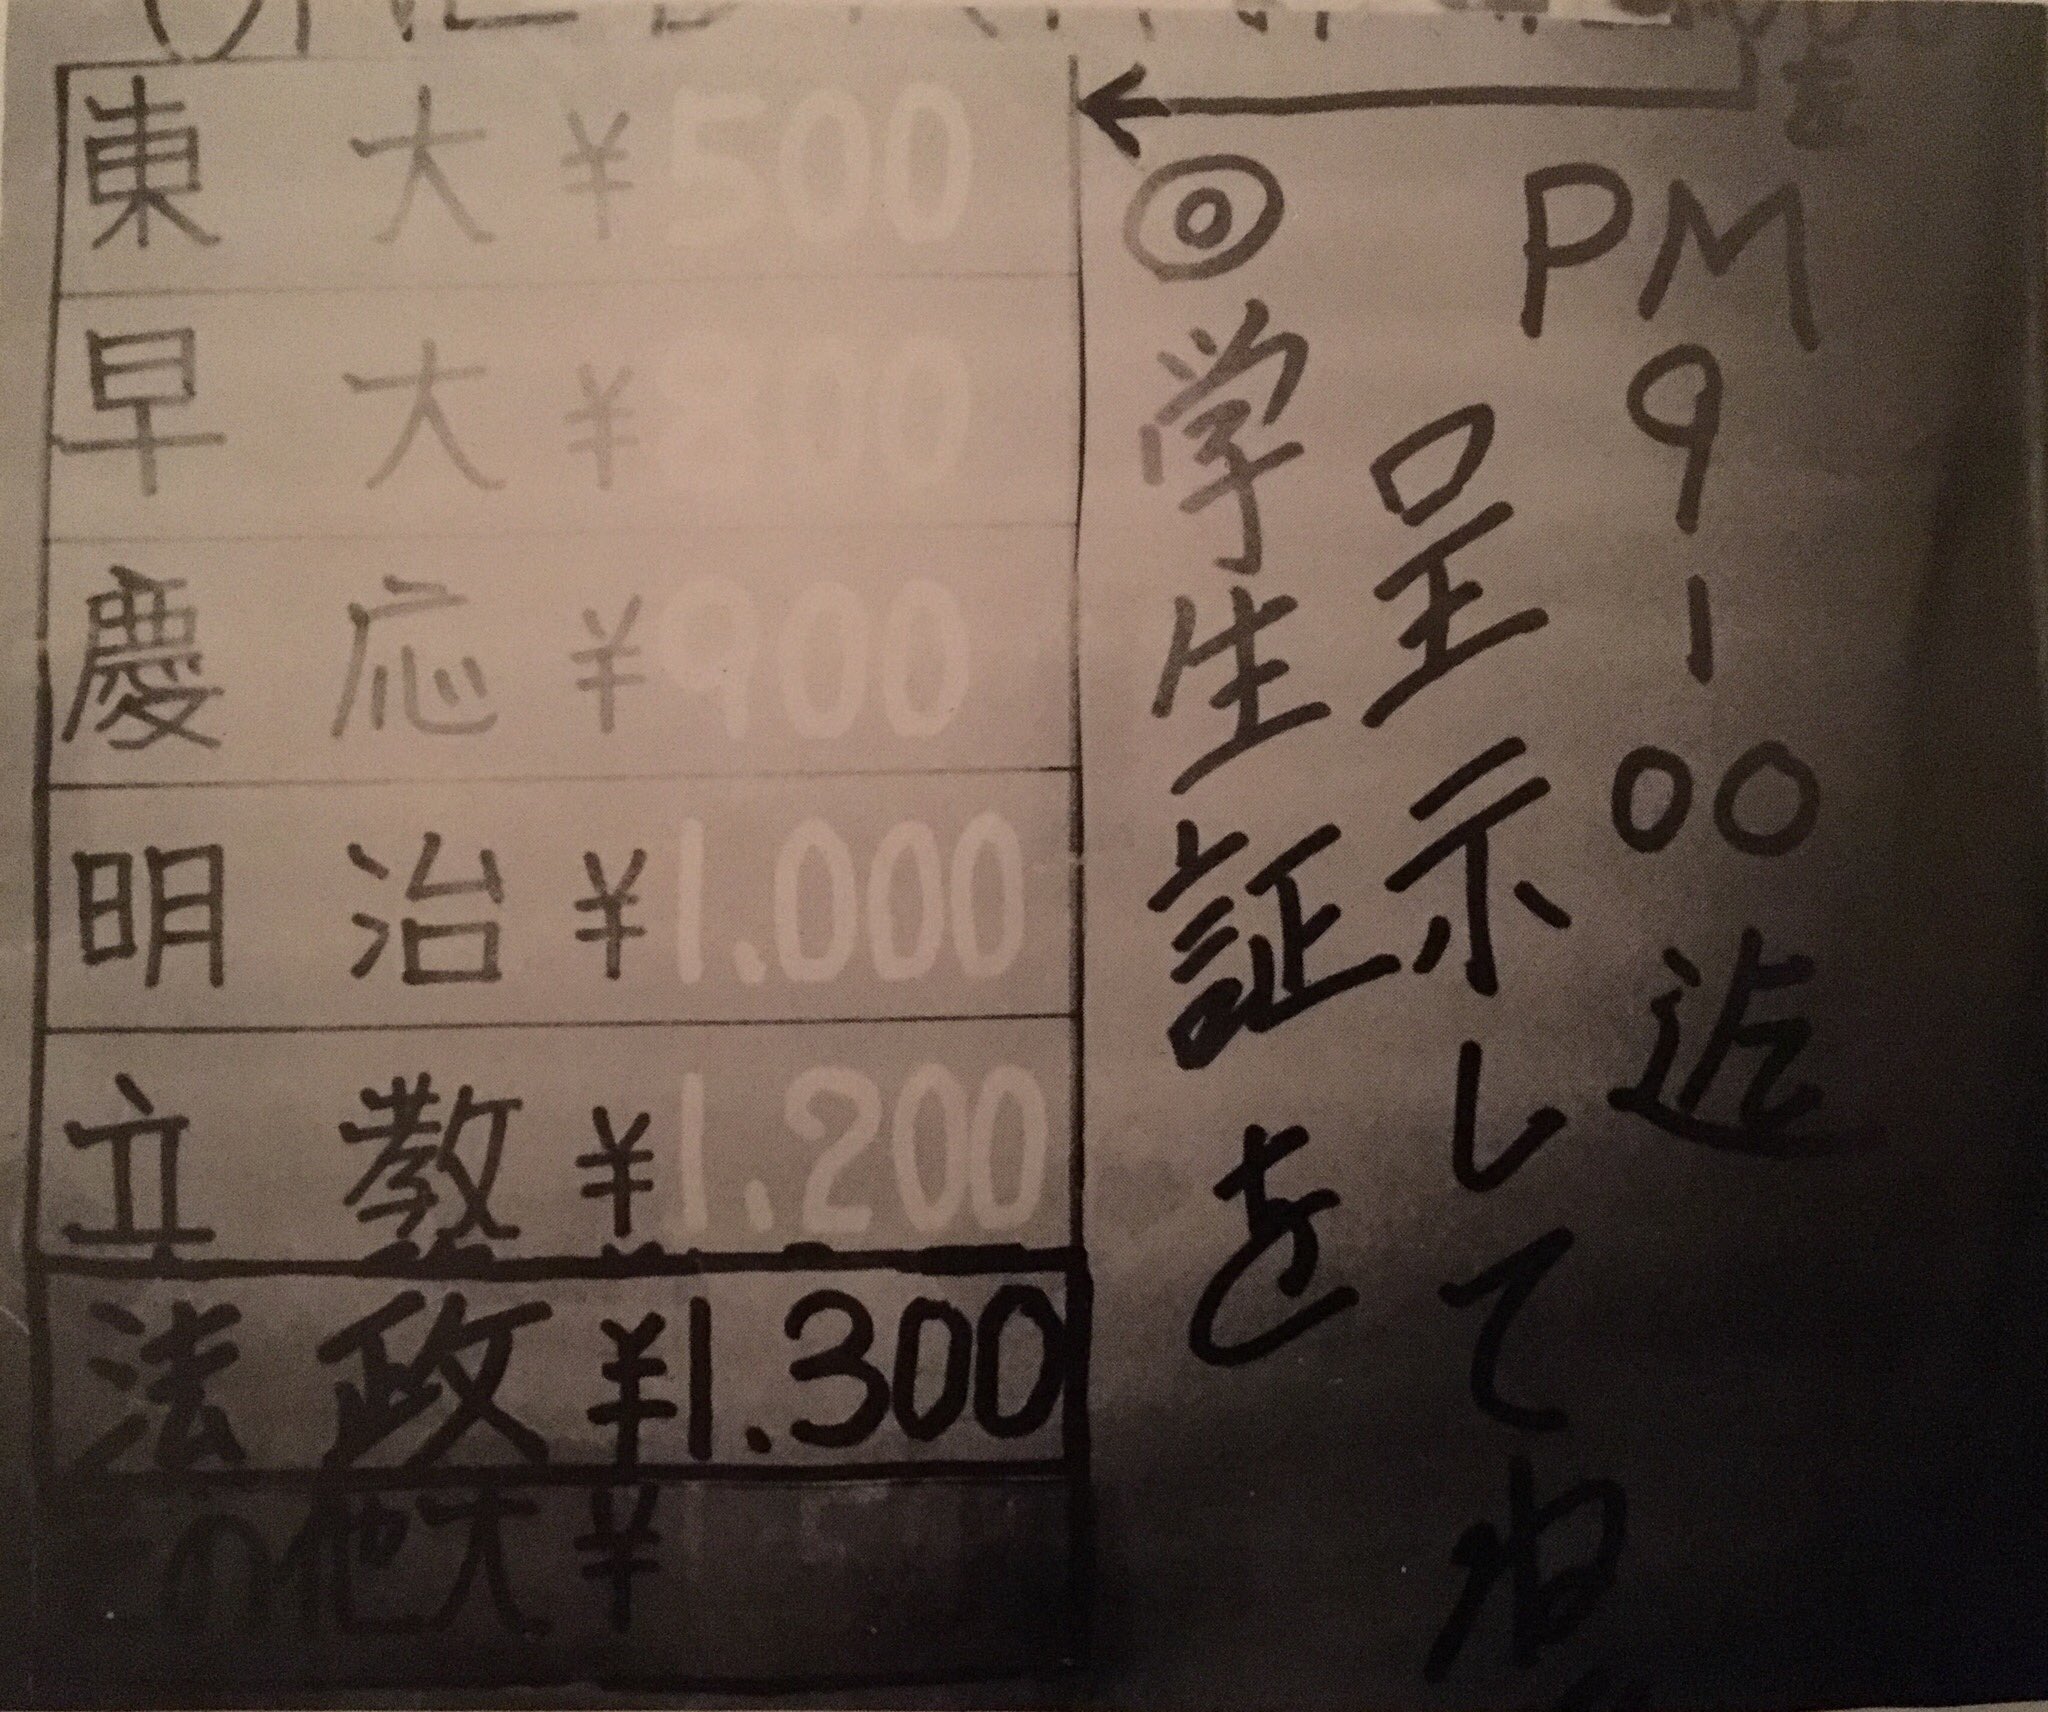 東大 ¥500
早大 ¥800
慶応 ¥900
明治 ¥1.000
立教 ¥1.200
法政 ¥1.300
その他大 ¥
◎学生証を
呈示してね
PM9-00迄